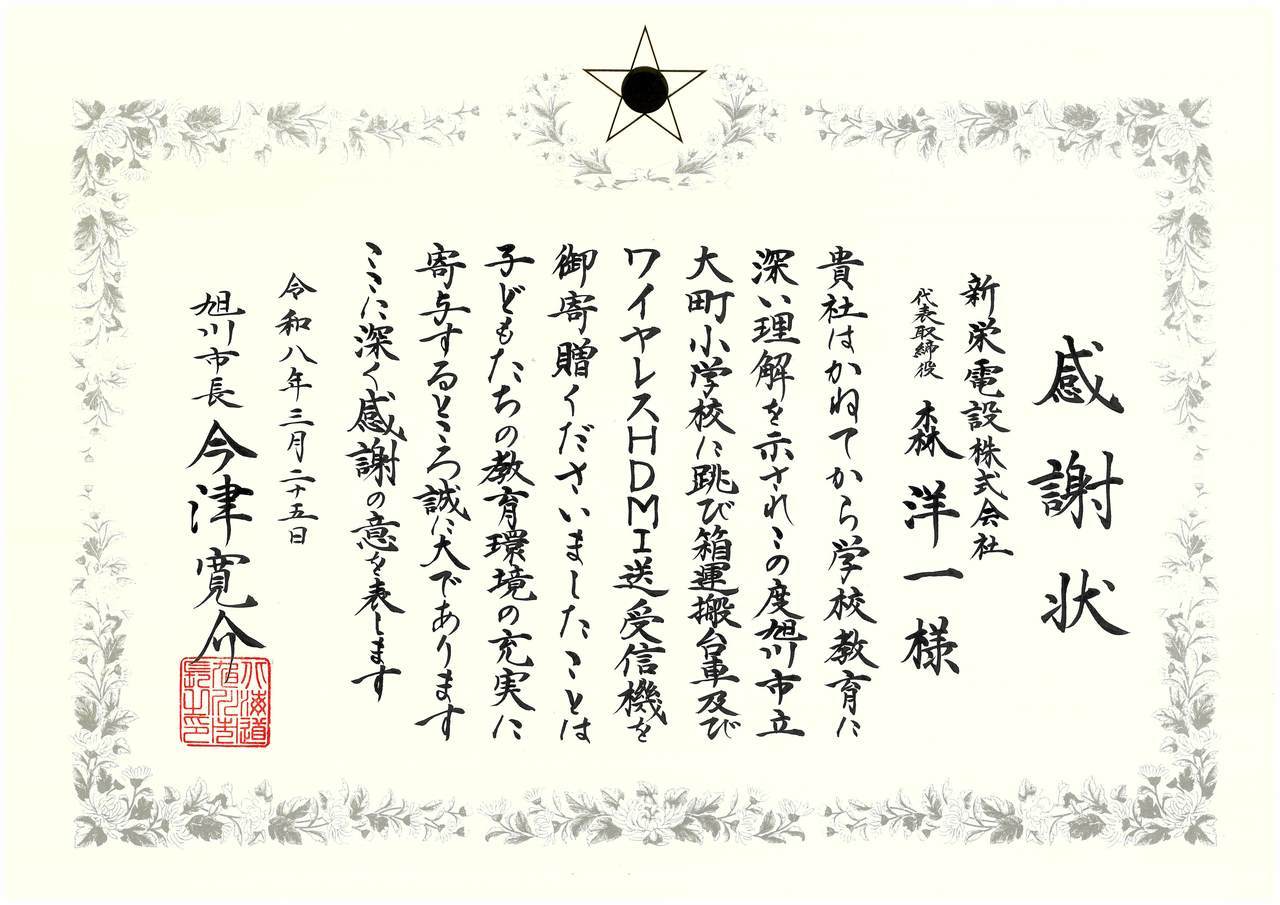 感謝状
新栄電設株式会社
代表取締役 森 洋一様
貴社はかねてから学校教育に
深い理解を示されこの度旭川市立
大町小学校に跳び箱運搬台車及び
ワイヤレスHDMI送受信機を
御寄贈くださいましたことは
子どもたちの教育環境の充実に
寄与するところ誠に大であります
ここに深く感謝の意を表します
令和八年三月二十五日
旭川市長 今津寛介
北海道
旭川市
長之印